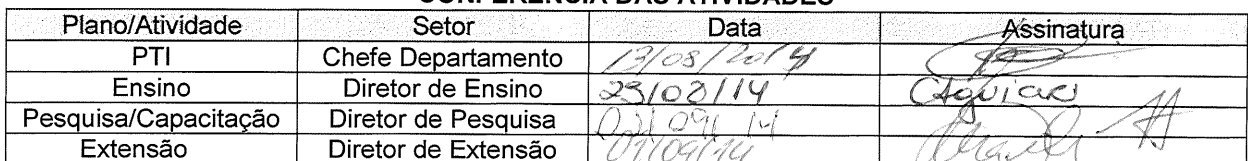 CONFERÊNCIA DAS ATIVIDADES
Plano/Atividade Setor Data Assinatura
PTI Chefe Departamento 13/08/2014
Ensino Diretor de Ensino 29/08/14 CAguiar
Pesquisa/Capacitação Diretor de Pesquisa 02/09/14
Extensão Diretor de Extensão 01/09/14